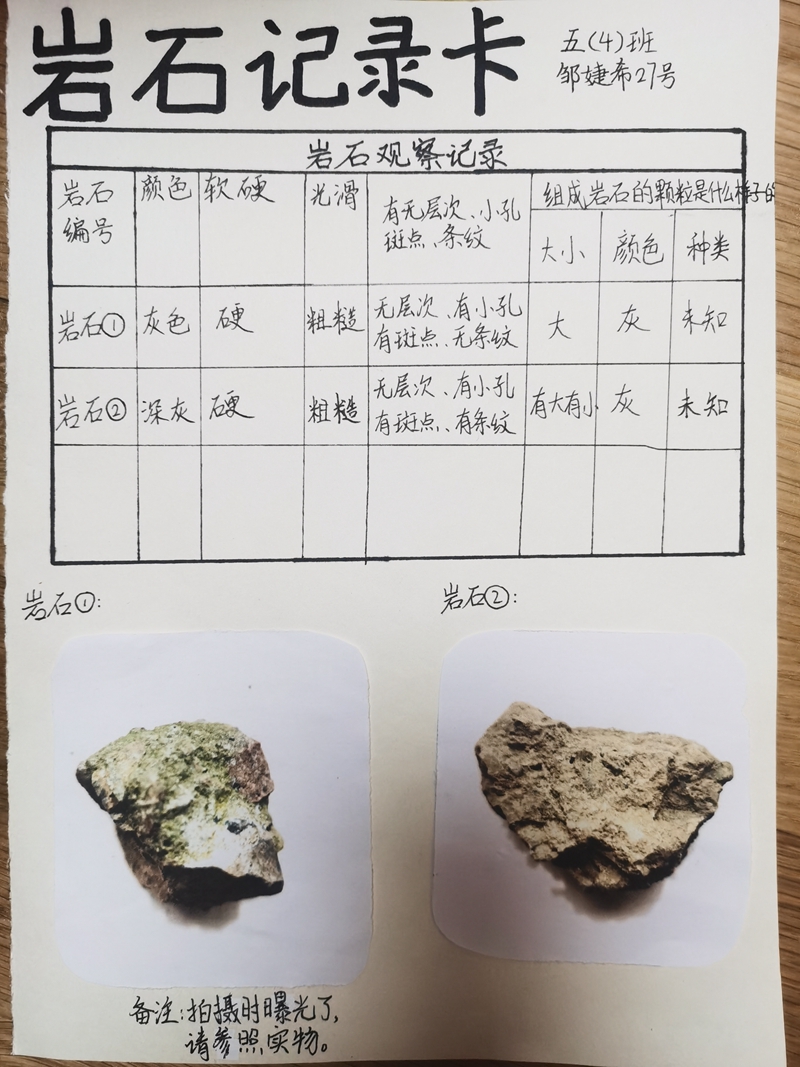 岩石记录卡
五(4)班
邹婕希27号
岩石观察记录
岩石编号 颜色 软硬 光滑 有无层次、小孔 斑点、条纹 组成岩石的颗粒是什么样子的
大小 颜色 种类
岩石① 灰色 硬 粗糙 无层次、有小孔 有斑点、无条纹 大 灰 未知
岩石② 深灰 硬 粗糙 无层次、有小孔 有斑点、有条纹 有大有小 灰 未知
岩石①: 岩石②:
备注:拍摄时曝光了,
请参照实物。